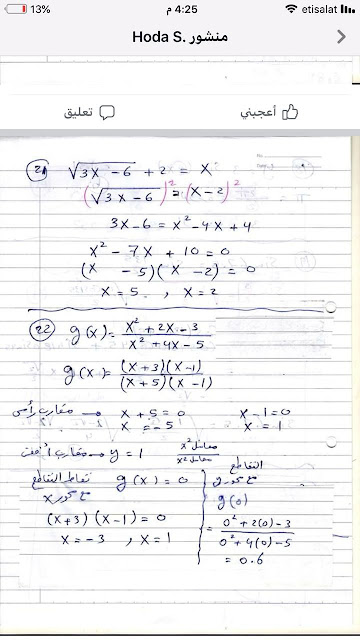 13% 4:25 م etisalat
منشور .Hoda S
أعجبني تعليق
21 √(3x-6) + 2 = x
(√(3x-6))² = (x-2)²
3x-6 = x²-4x+4
x² - 7x + 10 = 0
(x - 5)(x - 2) = 0
x = 5 , x = 2
22 g(x) = (x² + 2x - 3)/(x² + 4x - 5)
g(x) = (x+3)(x-1)/(x+5)(x-1)
مقارب رأسي → x + 5 = 0 x - 1 = 0
x = -5 x = 1
مقارب أفقي → y = 1 معامل x²/معامل x²
نقاط التقاطع مع محور x g(x) = 0
(x+3)(x-1) = 0
x = -3 , x = 1
التقاطع
مع محور y
g(0)
= (0² + 2(0) - 3)/(0² + 4(0) - 5)
= 0.6